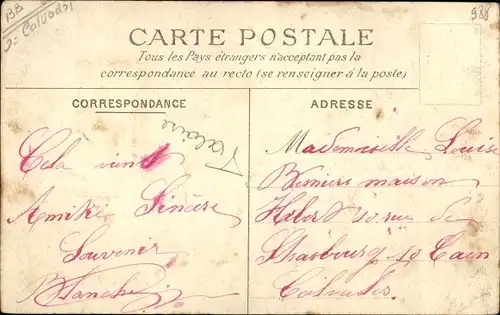 BB
Calvados
988
CARTE POSTALE
Tous les Pays étrangers n'acceptant pas la
correspondance au recto (se renseigner à la poste)
CORRESPONDANCE
ADRESSE
Amitié Sincère
Souvenir
Blanche
Mademoiselle Louise
maison
10 rue de
Strasbourg 10 Caen
Calvados